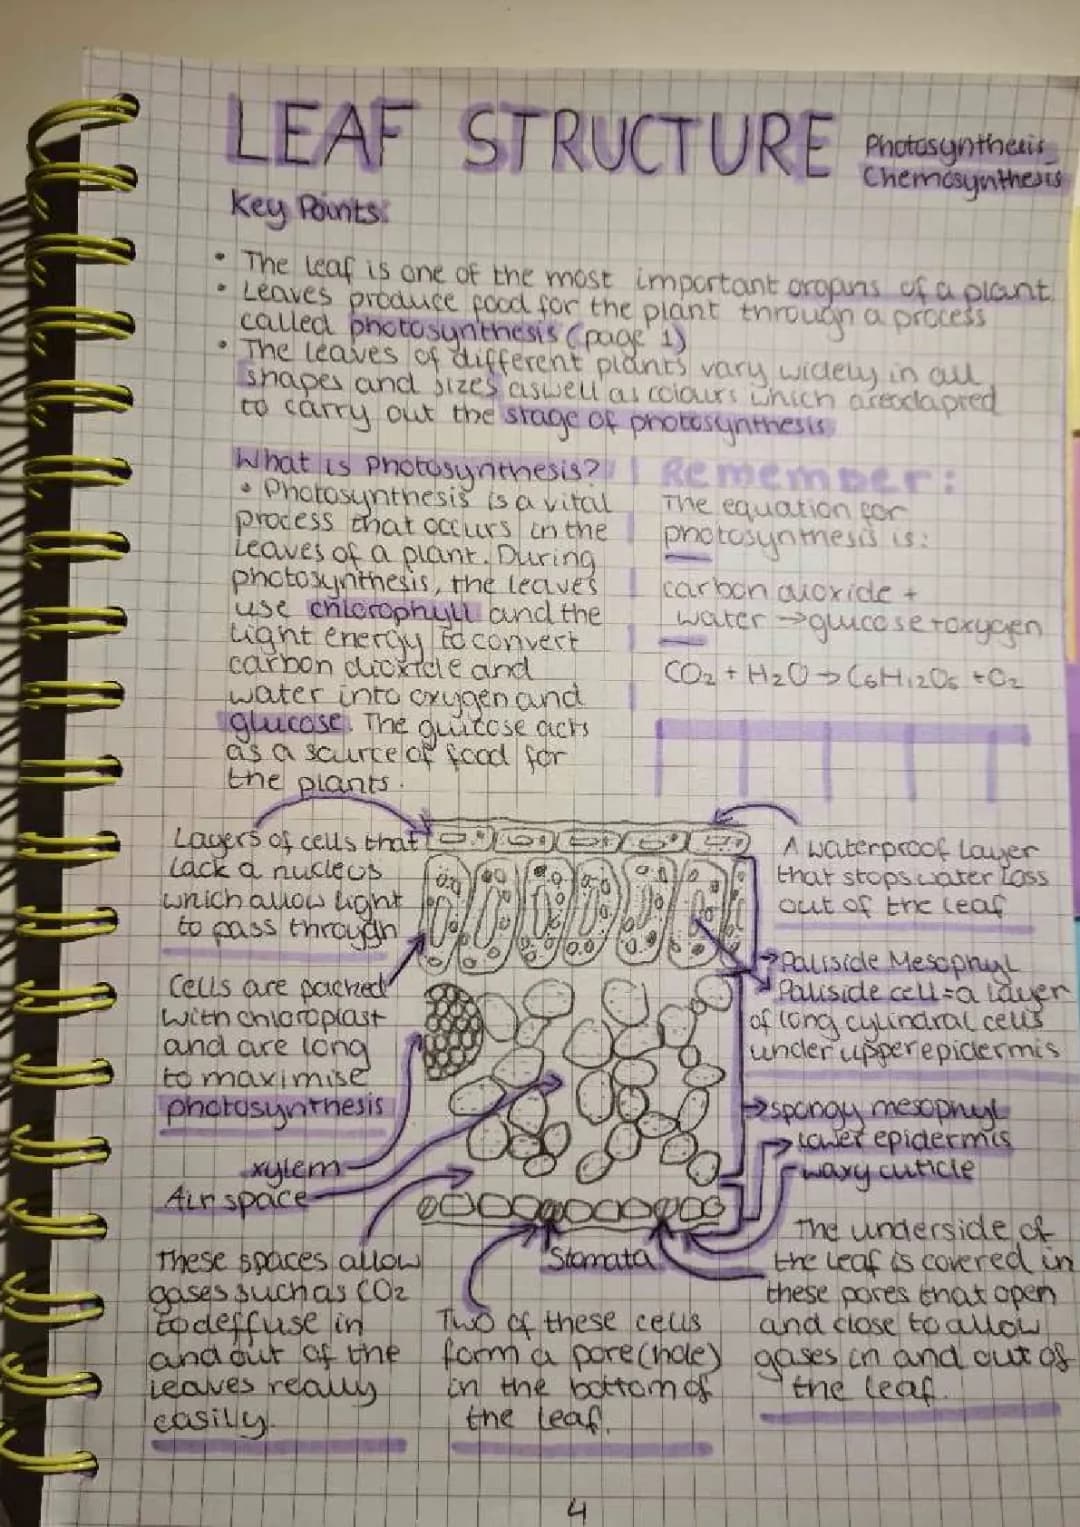 LEAF STRUCTURE
Photosynthesis
Chemosynthesis
Key Points:
• The leaf is one of the most important organs of a plant
• Leaves produce food for the plant through a process
called photosynthesis (page 1)
• The leaves of different plants vary widely in all
shapes and sizes aswell as colours which are adapted
to carry out the stage of photosynthesis
What is Photosynthesis?
• Photosynthesis is a vital
process that occurs in the
leaves of a plant. During
photosynthesis, the leaves
use chlorophyll and the
light energy to convert
carbon dioxide and
water into oxygen and
glucose. The glucose acts
as a source of food for
the plants.
Remember:
The equation for
photosynthesis is:
carbon dioxide +
water → glucose + oxygen
CO2 + H2O → C6H12O6 + O2
Layers of cells that
lack a nucleus
which allow light
to pass through
Cells are packed
with chloroplast
and are long
to maximise
photosynthesis
xylem
Air space
These spaces allow
gases such as CO2
to deffuse in
and out of the
leaves really
easily.
Stomata
Two of these cells
form a pore (hole)
in the bottom of
the leaf.
A waterproof layer
that stops water loss
out of the leaf
Paliside Mesophyl
Paliside cell = a layer
of long cylindral cells
under upper epidermis
spongy mesophyl
lower epidermis
waxy cuticle
The underside of
the leaf is covered in
these pores that open
and close to allow
gases in and out of
the leaf.
4